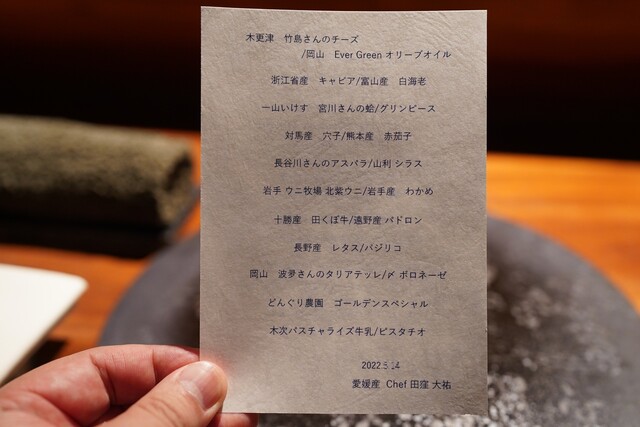 木更津　竹島さんのチーズ
/岡山　Ever Green オリーブオイル
浙江省産　キャビア/富山産　白海老
一山いけす　宮川さんの蛤/グリンピース
対馬産　穴子/熊本産　赤茄子
長谷川さんのアスパラ/山利 シラス
岩手 ウニ牧場 北紫ウニ/岩手産　わかめ
十勝産　田くぼ牛/遠野産 パドロン
長野産　レタス/バジリコ
岡山　波夛さんのタリアテッレ/〆 ボロネーゼ
どんぐり農園　ゴールデンスペシャル
木次パスチャライズ牛乳/ピスタチオ
2022.5.14
愛媛産　Chef 田窪 大祐